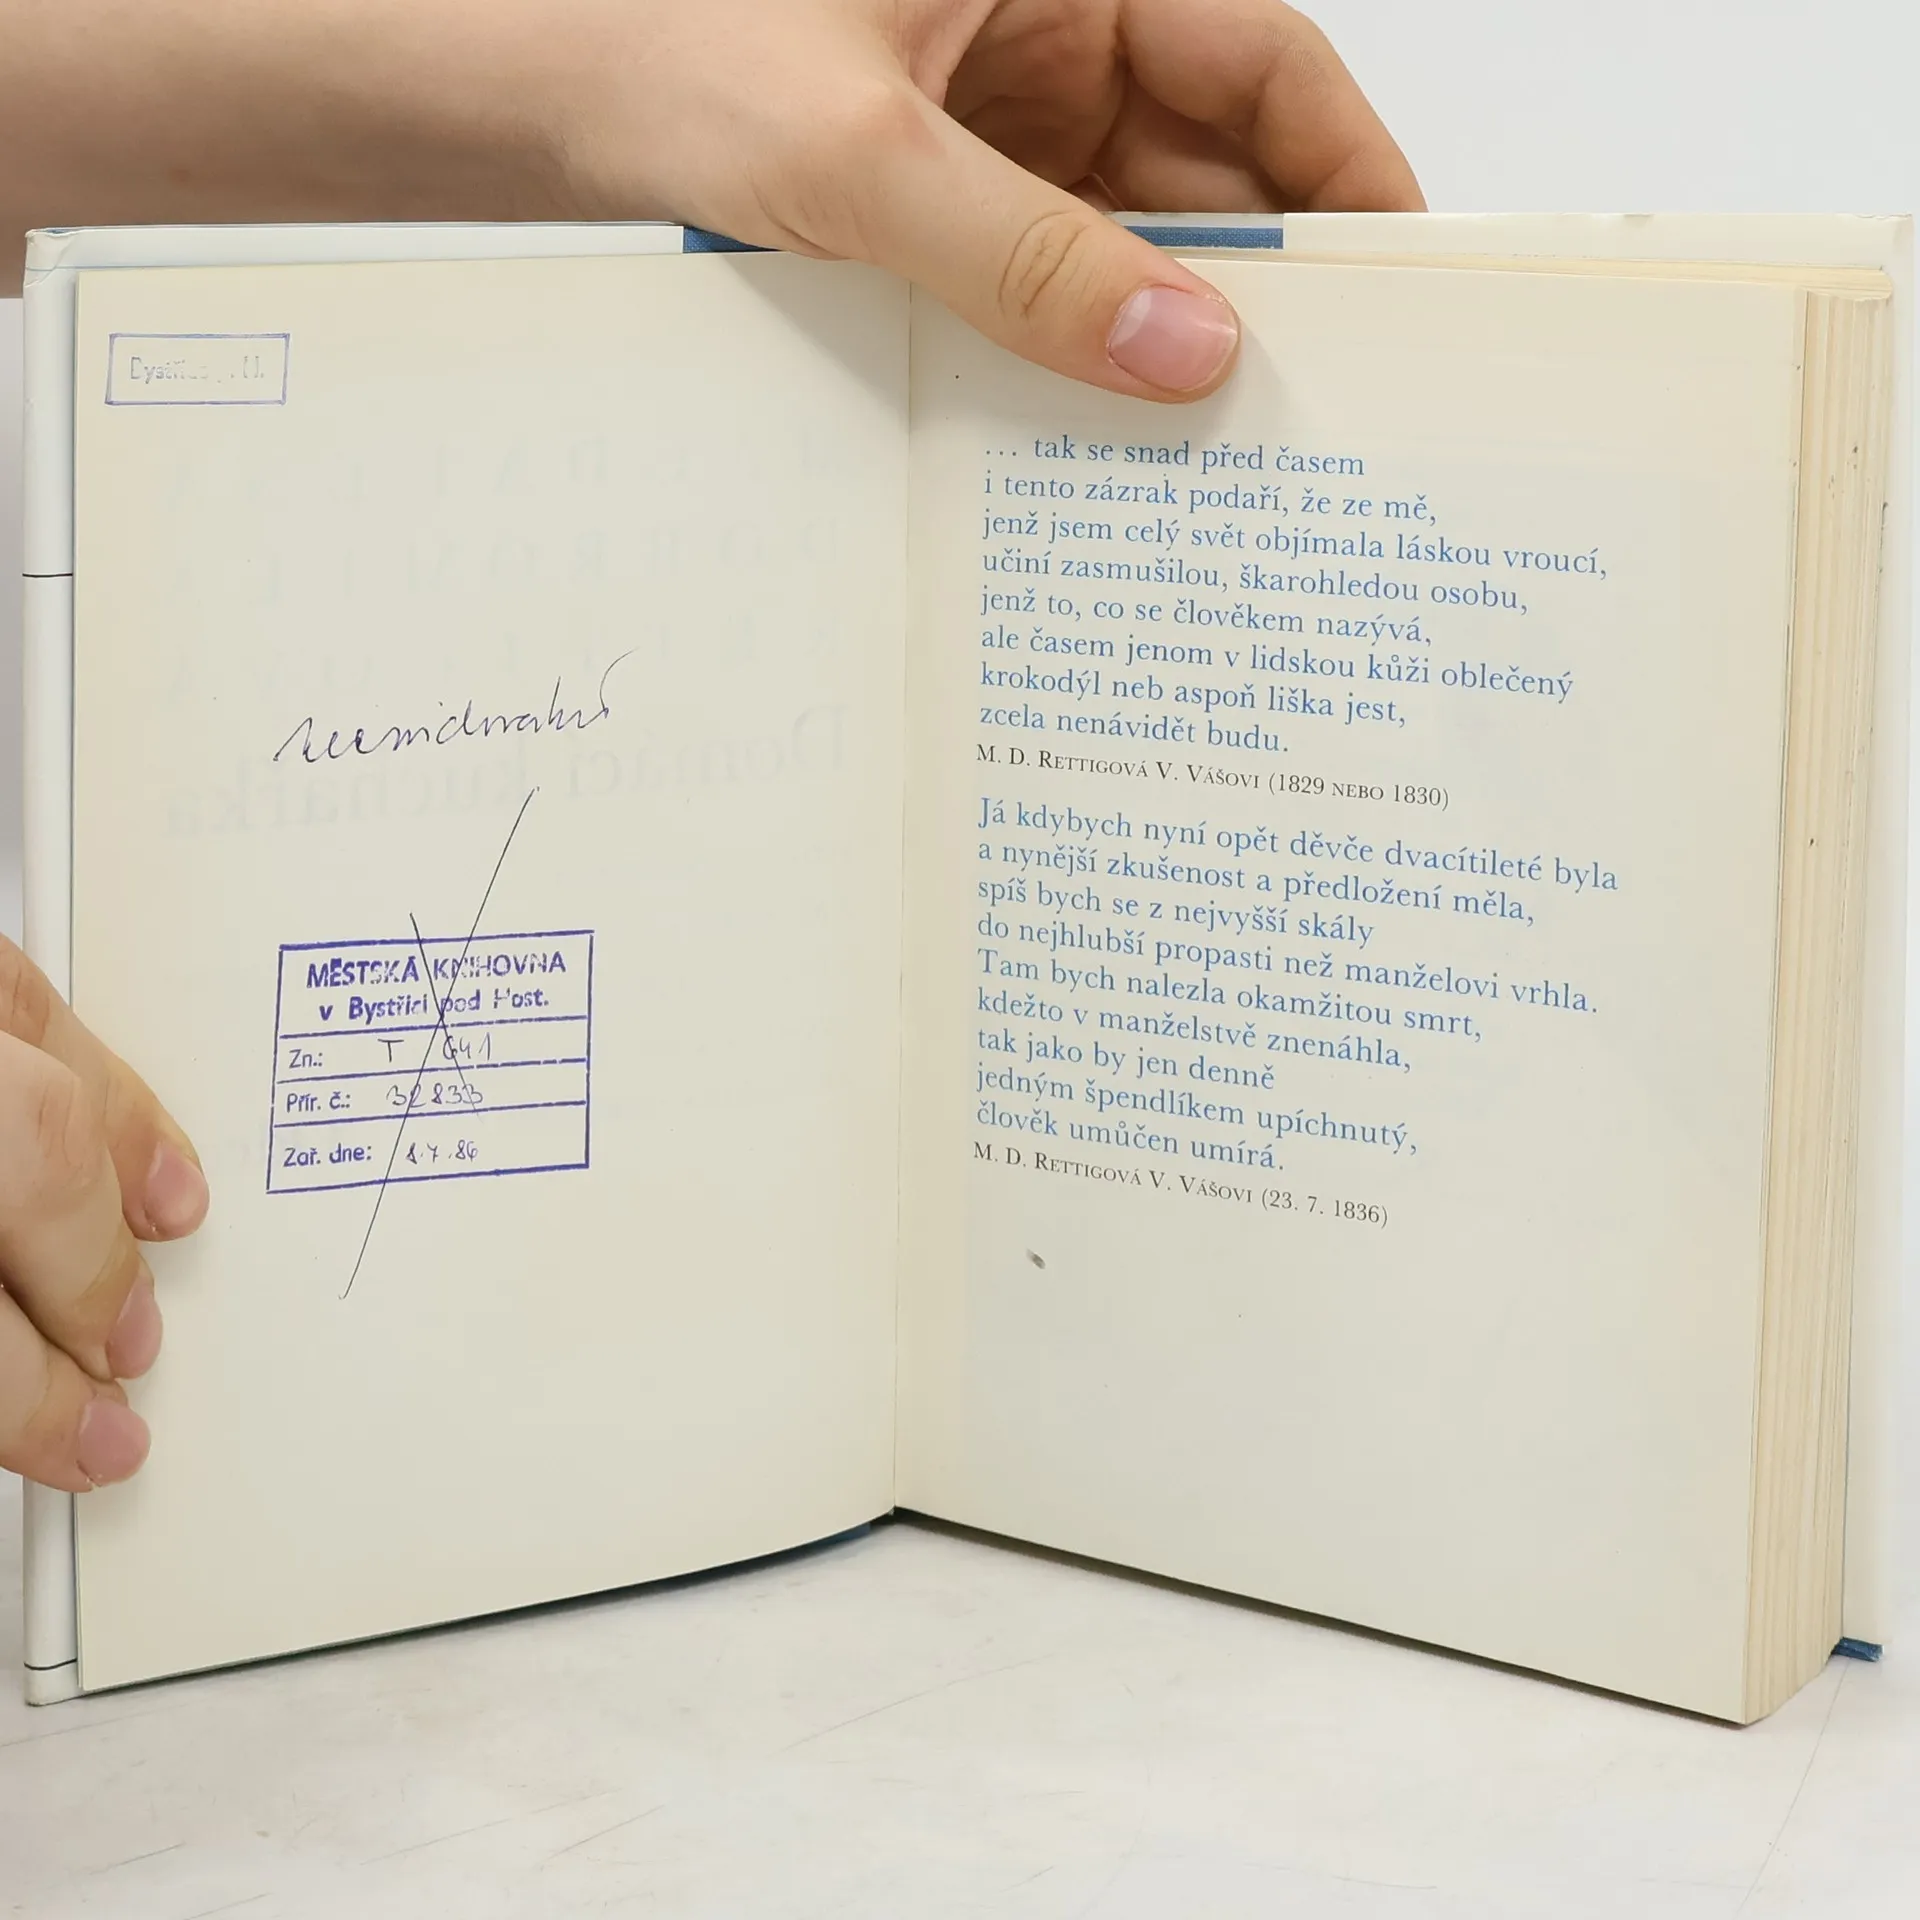 MĚSTSKÁ KNIHOVNA
v Bystřici pod Host.
Zn.: T 641
Přír. č.: 32833
Zař. dne: 8.7.86
Domácí kuchařka
... tak se snad před časem
i tento zázrak podaří, že ze mě,
jenž jsem celý svět objímala láskou vroucí,
učiní zasmušilou, škarohledou osobu,
jenž to, co se člověkem nazývá,
ale časem jenom v lidskou kůži oblečený
krokodýl neb aspoň liška jest,
zcela nenávidět budu.
M. D. RETTIGOVÁ V. VÁŠOVI (1829 NEBO 1830)
Já kdybych nyní opět děvče dvacítileté byla
a nynější zkušenost a předložení měla,
spíš bych se z nejvyšší skály
do nejhlubší propasti než manželovi vrhla.
Tam bych nalezla okamžitou smrt,
kdežto v manželstvě znenáhla,
tak jako by jen denně
jedným špendlíkem upíchnutý,
člověk umůčen umírá.
M. D. RETTIGOVÁ V. VÁŠOVI (23. 7. 1836)